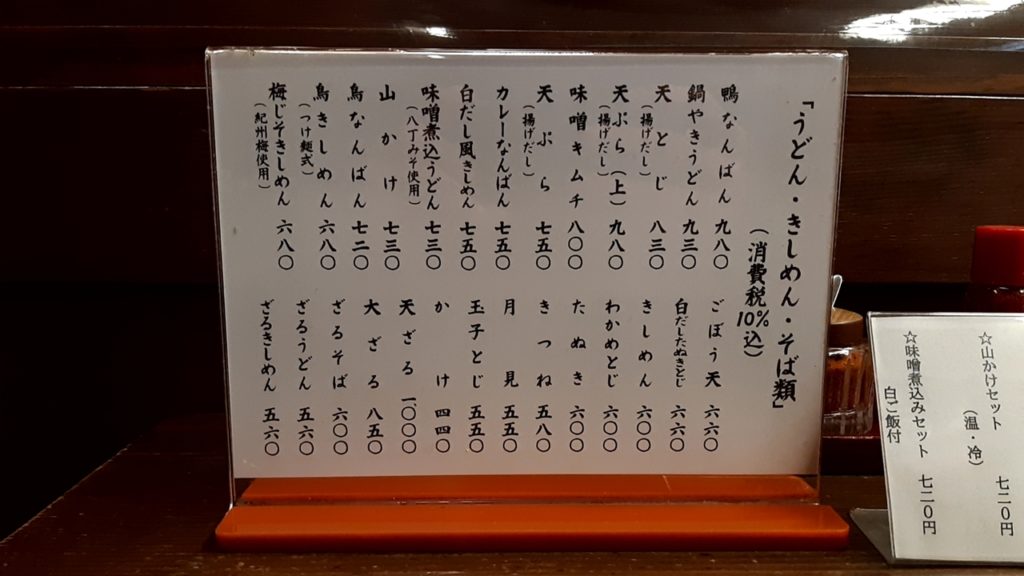 「うどん・きしめん・そば類」
(消費税10%込)
鴨なんばん 九八〇
鍋やきうどん 九三〇
天とじ 八三〇
(揚げだし)
天ぷら(上) 九八〇
(揚げだし)
味噌キムチ 八〇〇
天ぷら 七五〇
(揚げだし)
カレーなんばん 七五〇
白だし風きしめん 七五〇
味噌煮込うどん 七三〇
(八丁みそ使用)
山かけ 七三〇
鳥なんばん 七二〇
鳥きしめん 六八〇
(つけ麺式)
梅じそきしめん 六八〇
(紀州梅使用)
ごぼう天 六六〇
白だしたぬきとじ 六六〇
きしめん 六〇〇
わかめとじ 六〇〇
たぬき 六〇〇
きつね 五八〇
月見 五五〇
玉子とじ 五五〇
かけ 四四〇
天ざる 一〇〇〇
大ざる 八五〇
ざるそば 六〇〇
ざるうどん 五六〇
ざるきしめん 五六〇
☆山かけセット 七二〇円
(温・冷)
☆味噌煮込みセット 七二〇円
白ご飯付